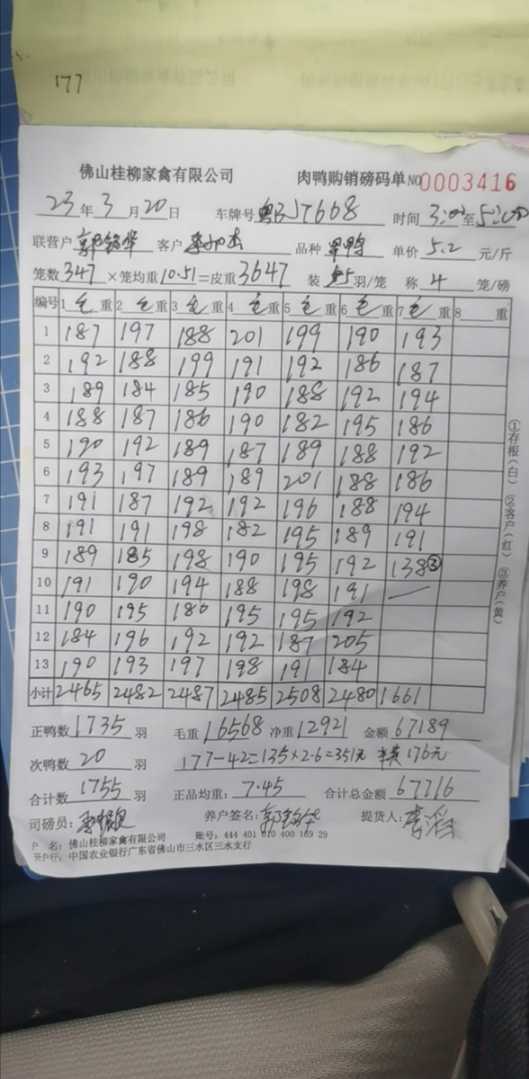 177
佛山桂柳家禽有限公司 肉鸭购销磅码单 NO 0003416
23年3月20日 车牌号 时间 3:00至5:00
联营户 客户 品种 单价 5.2 元/斤
笼数 347 ×笼均重 10.51=皮重 3647 装 5 羽/笼 称 4 笼/磅
编号 1 毛 重 2 毛 重 3 毛 重 4 毛 重 5 毛 重 6 毛 重 7 毛 重 8 重
1 187 197 188 201 199 190 193
2 192 188 199 191 192 186 187
3 189 184 185 190 188 192 194
4 188 187 186 190 182 195 186
5 190 192 189 187 189 188 192
6 193 197 189 189 201 188 186
7 191 187 192 192 196 188 194
8 191 191 198 182 195 189 191
9 189 185 198 190 195 192 138③
10 191 190 194 188 198 191 —
11 190 195 180 195 195 192
12 184 196 192 192 187 205
13 190 193 197 198 191 184
小计 2465 2482 2487 2485 2508 2480 1661
①存根(白) ②客户(红) ③养户(黄)
正鸭数 1735 羽 毛重 16568 净重 12921 金额 67189
次鸭数 20 羽 177-42=135×2.6=351元 176元
合计数 1755 羽 正品均重: 7.45 合计总金额 67716
司磅员: 养户签名: 提货人:
户 名: 佛山桂柳家禽有限公司 账号: 444 401 010 400 169 29
开户行: 中国农业银行广东省佛山市三水区三水支行